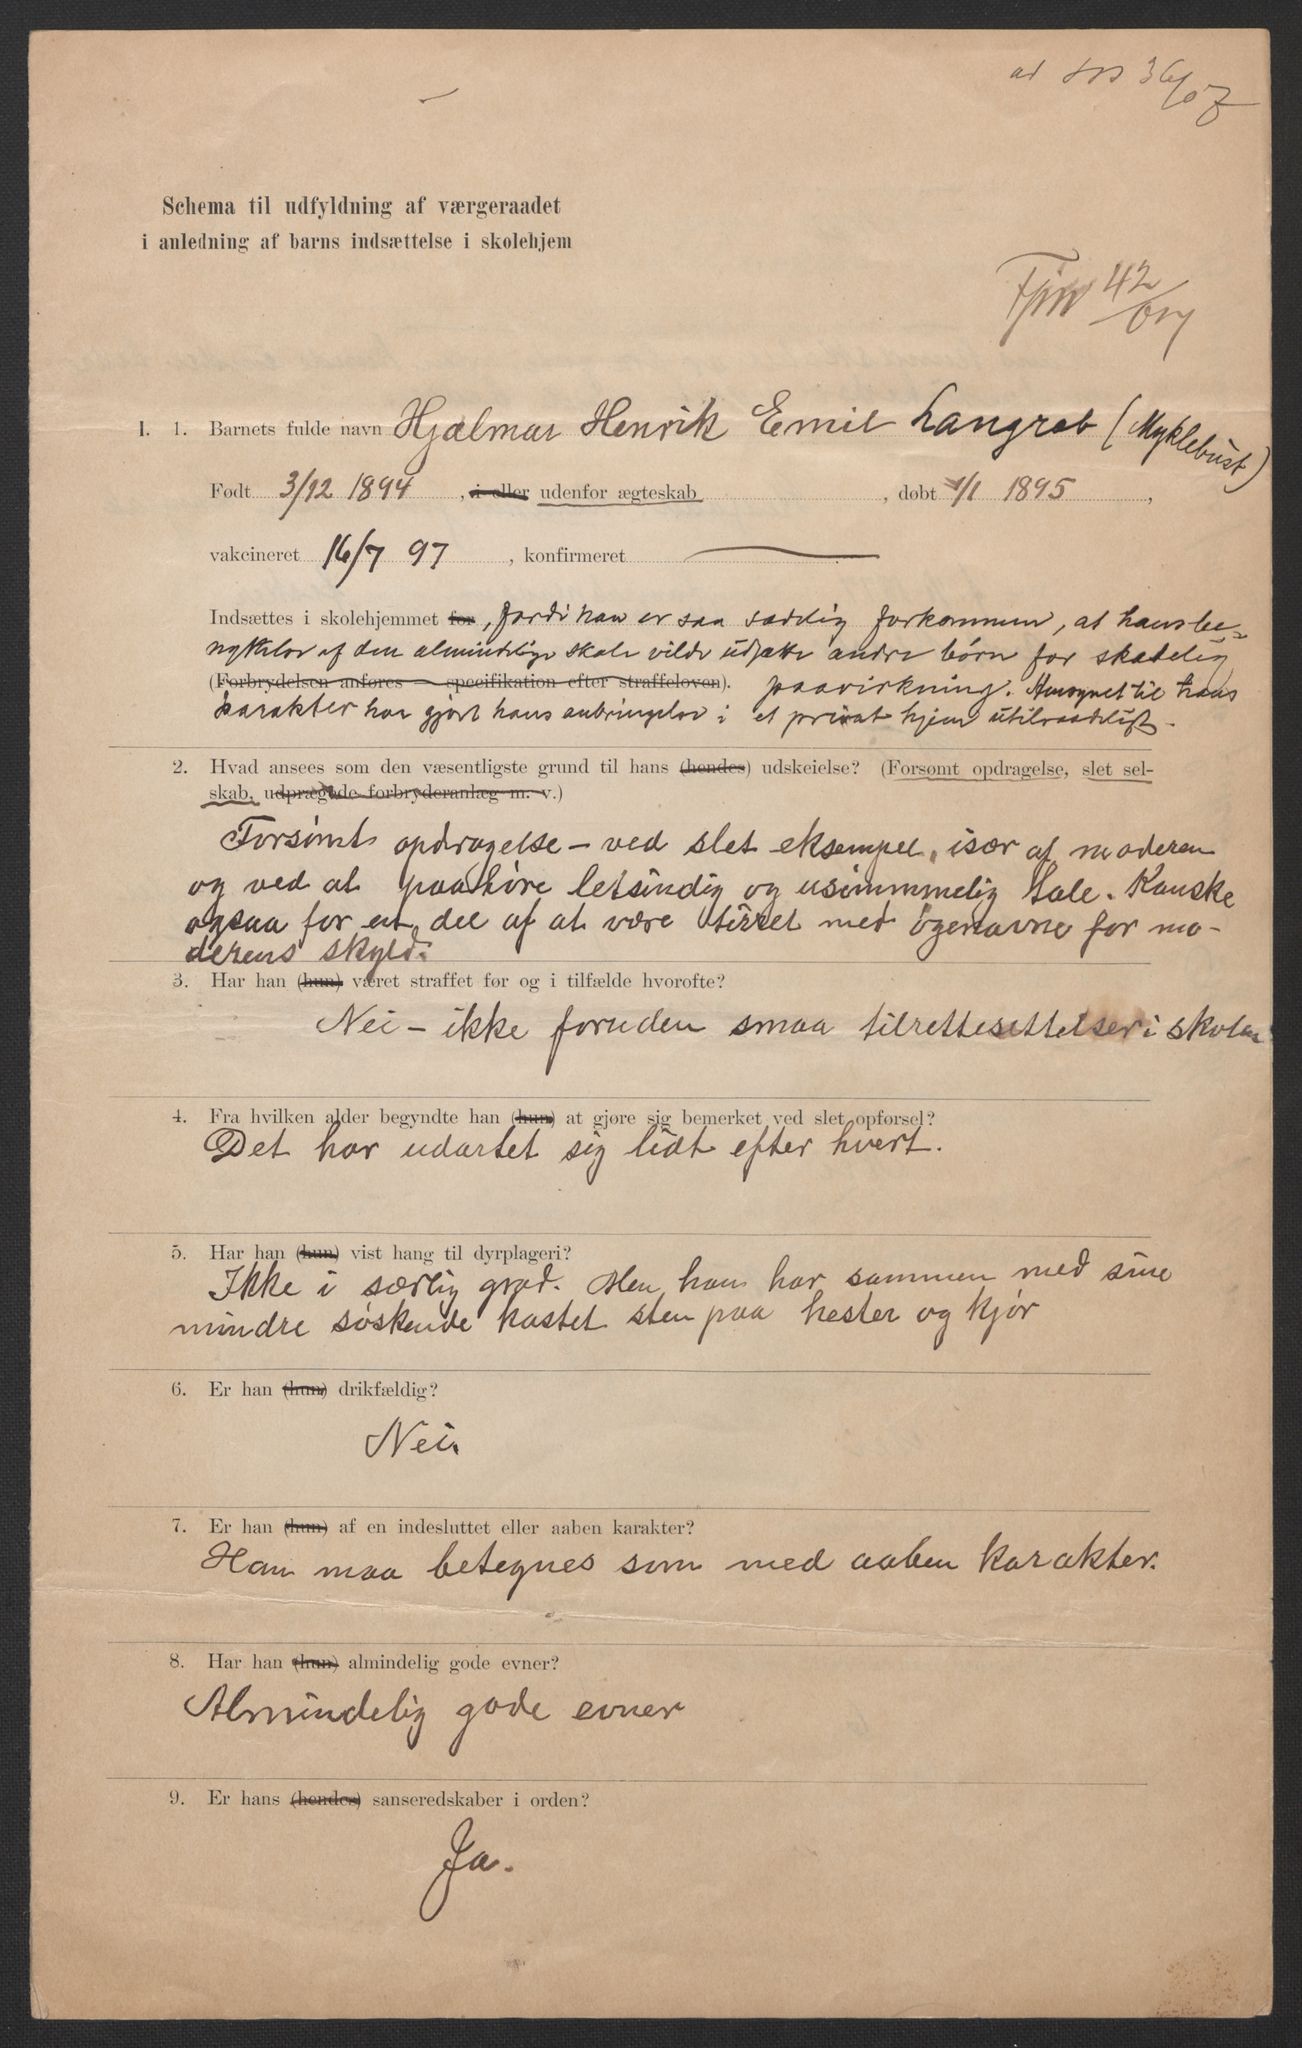 ad 36/07
Schema til udfyldning af værgeraadet
i anledning af barns indsættelse i skolehjem
42/07
I. 1. Barnets fulde navn Hjalmar Henrik Emil Langrab (Myklebust)
Født 3/12 1894, i eller udenfor ægteskab, døbt 1/1 1895,
vakcineret 16/7 97, konfirmeret —
Indsættes i skolehjemmet for, fordi han er saa sædelig forkommen, at hans be-
nyttelse af den almindelige skole vilde udsætte andre børn for skadelig
(Forbrydelsen anføres — specifikation efter straffeloven). paavirkning. Hensynet til hans
karakter har gjort hans anbringelse i et privat hjem utilraadeligt.
2. Hvad ansees som den væsentligste grund til hans (hendes) udskeielse? (Forsømt opdragelse, slet sel-
skab, udprægede forbryderanlæg m. v.)
Forsømt opdragelse – ved slet eksempel, især af moderen
og ved at paahøre letsindig og usømmelig tale. Kanske
ogsaa for en del af at være tirret med øgenavne for mo-
derens skyld.
3. Har han (hun) været straffet før og i tilfælde hvorofte?
Nei – ikke foruden smaa tilrettesettelser i skolen
4. Fra hvilken alder begyndte han (hun) at gjøre sig bemerket ved slet opførsel?
Det har udartet sig lidt efter hvert.
5. Har han (hun) vist hang til dyrplageri?
Ikke i særlig grad. Men han har sammen med sine
mindre søskende kastet sten paa hester og kjør
6. Er han (hun) drikfældig?
Nei.
7. Er han (hun) af en indesluttet eller aaben karakter?
Han maa betegnes som med aaben karakter.
8. Har han (hun) almindelig gode evner?
Almindelig gode evner
9. Er hans (hendes) sanseredskaber i orden?
Ja.